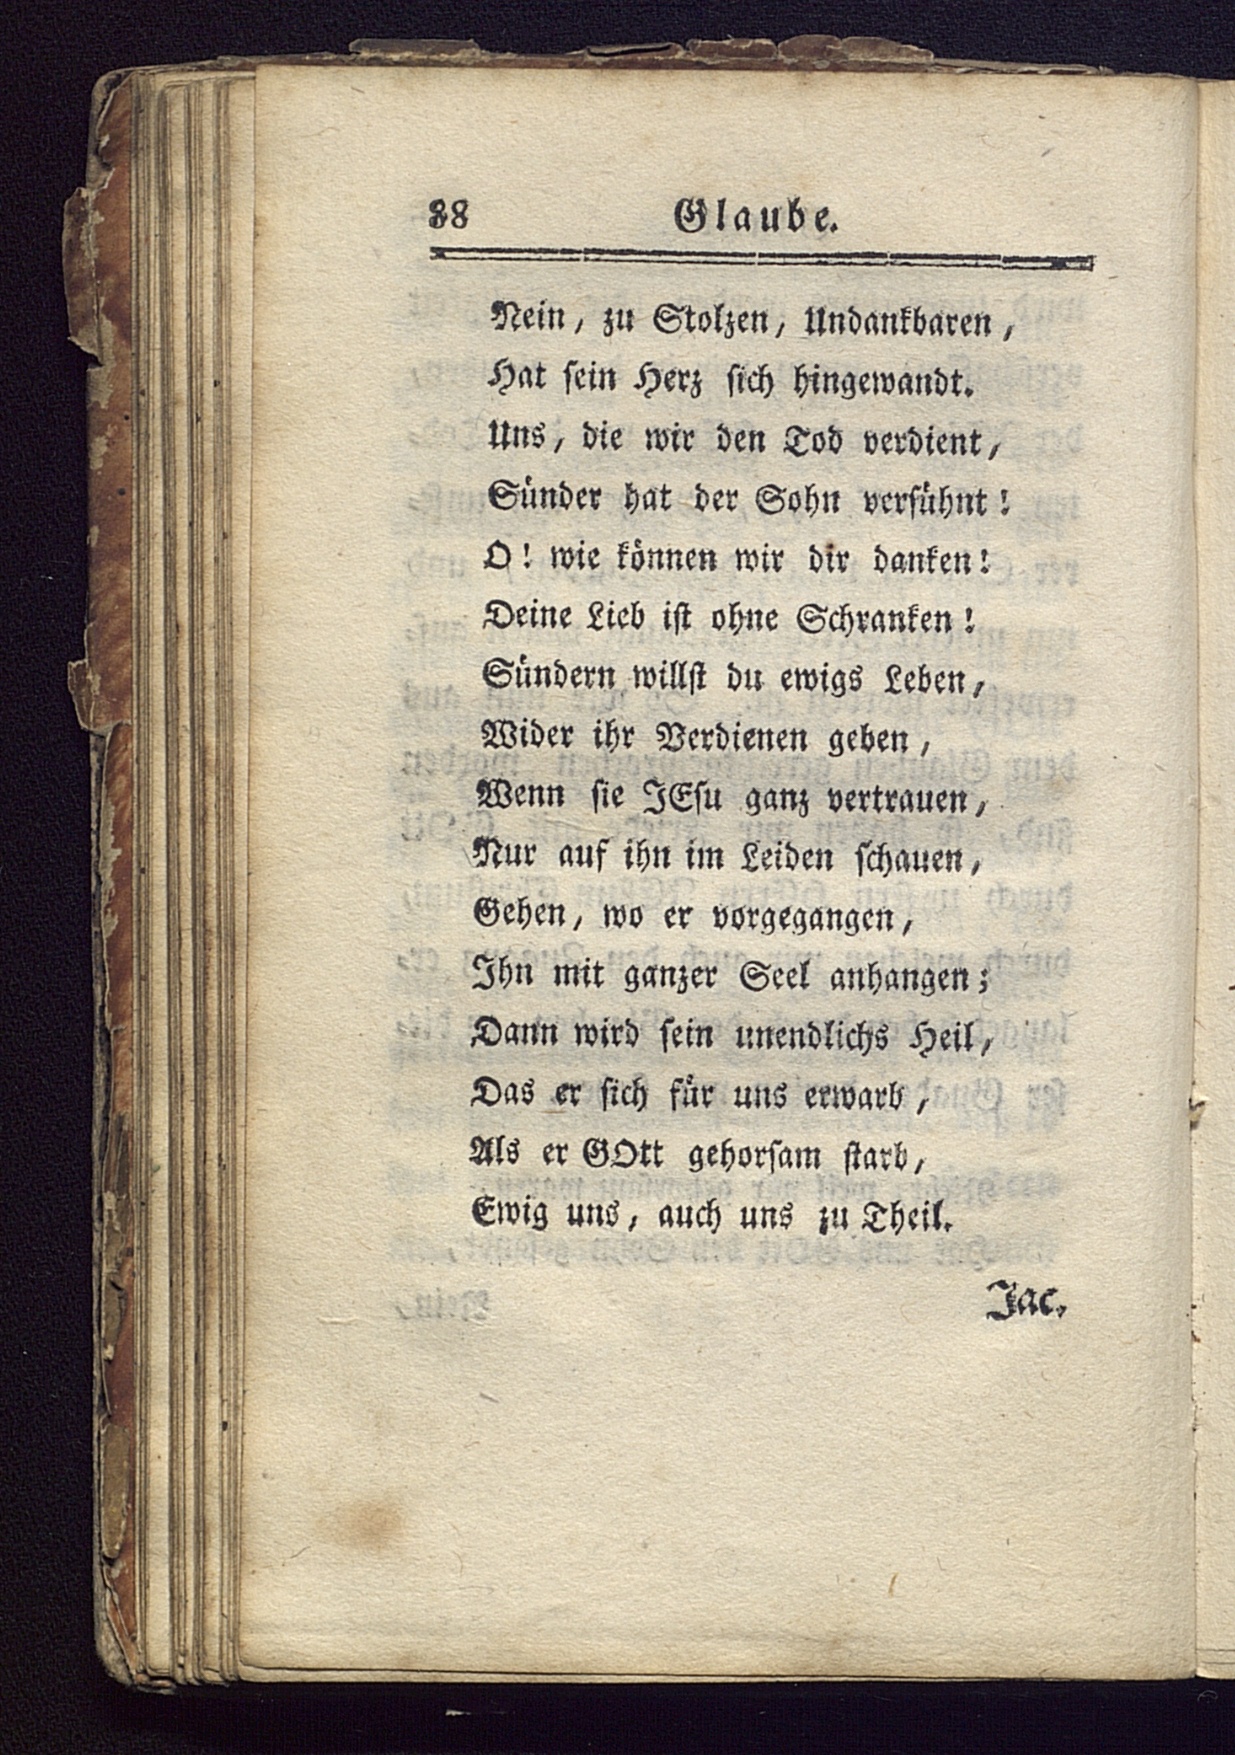 88 Glaube.
Nein, zu Stolzen, Undankbaren,
Hat ſein Herz ſich hingewandt.
Uns, die wir den Tod verdient,
Sünder hat der Sohn verſühnt!
O! wie können wir dir danken!
Deine Lieb iſt ohne Schranken!
Sündern willſt du ewigs Leben,
Wider ihr Verdienen geben,
Wenn ſie JEſu ganz vertrauen,
Nur auf ihn im Leiden ſchauen,
Gehen, wo er vorgegangen,
Ihn mit ganzer Seel anhangen;
Dann wird ſein unendlichs Heil,
Das er ſich für uns erwarb,
Als er GOtt gehorſam ſtarb,
Ewig uns, auch uns zu Theil.
Jac.